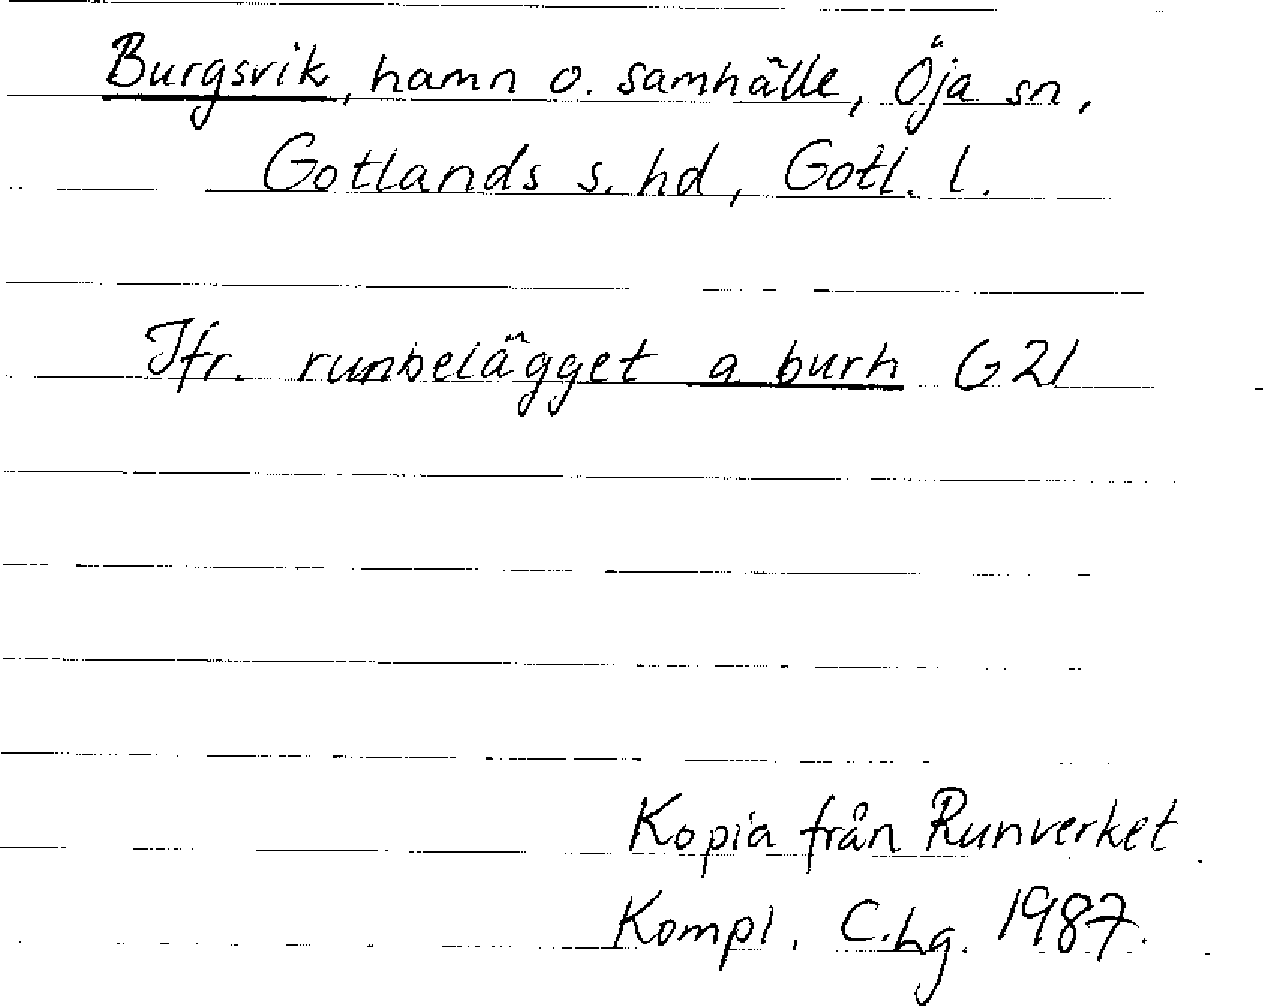 Burgsvik, hamn o. samhälle, Öja sn,
Gotlands s. hd, Gotl. l.
Jfr. runbelägget a burh G21
Kopia från Runverket.
Kompl. C.Lg. 1987.